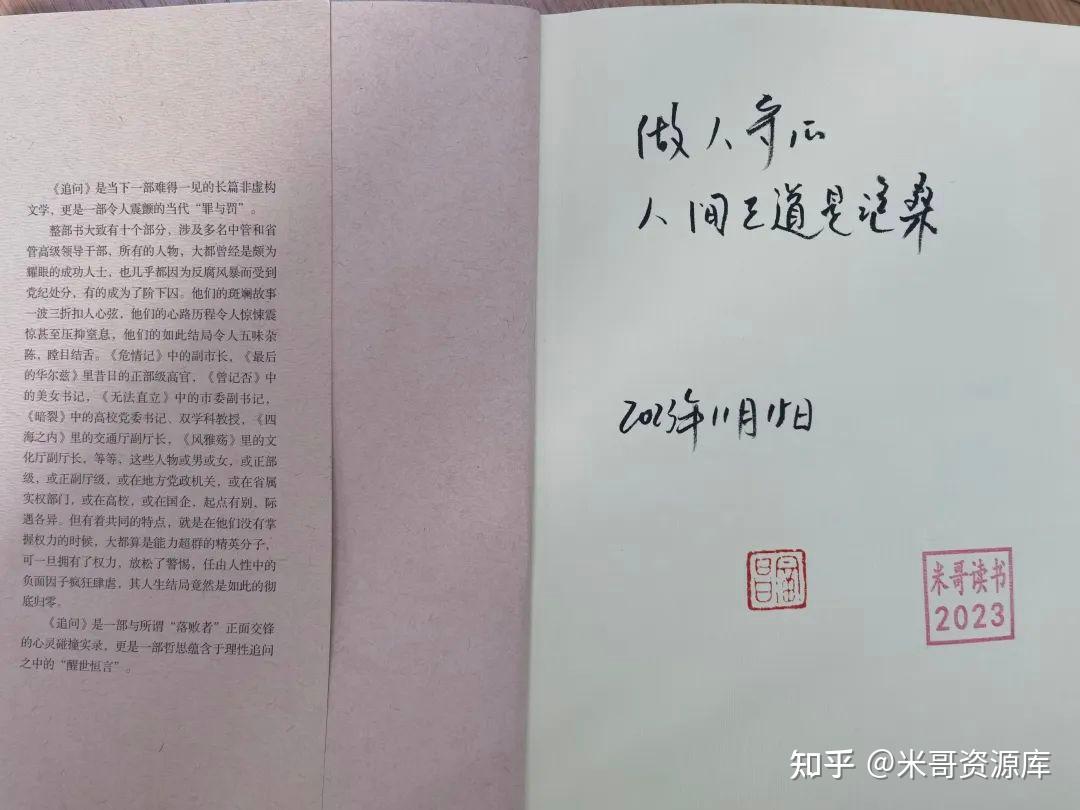 《追问》是当下一部难得一见的长篇非虚构
文学，更是一部令人震颤的当代“罪与罚”。
整部书大致有十个部分，涉及多名中管和省
管高级领导干部，所有的人物，大都曾经是颇为
耀眼的成功人士，也几乎都因为反腐风暴而受到
党纪处分，有的成为了阶下囚。他们的斑斓故事
一波三折扣人心弦，他们的心路历程令人惊悚震
惊甚至压抑窒息，他们的如此结局令人五味杂
陈，瞠目结舌。《危情记》中的副市长，《最后
的华尔兹》里昔日的正部级高官，《曾记否》中
的美女书记，《无法直立》中的市委副书记，
《暗裂》中的高校党委书记、双学科教授，《四
海之内》里的交通厅副厅长，《风雅殇》里的文
化厅副厅长，等等，这些人物或男或女，或正部
级，或正副厅级，或在地方党政机关，或在省属
实权部门，或在高校，或在国企，起点有别，际
遇各异。但有着共同的特点，就是在他们没有掌
握权力的时候，大都算是能力超群的精英分子，
可一旦拥有了权力，放松了警惕，任由人性中的
负面因子疯狂肆虐，其人生结局竟然是如此的彻
底归零。
《追问》是一部与所谓“落败者”正面交锋
的心灵碰撞实录，更是一部哲思蕴含于理性追问
之中的“醒世恒言”。
做人守正
人间正道是沧桑
2023年11月15日
米哥读书
2023
知乎 @米哥资源库